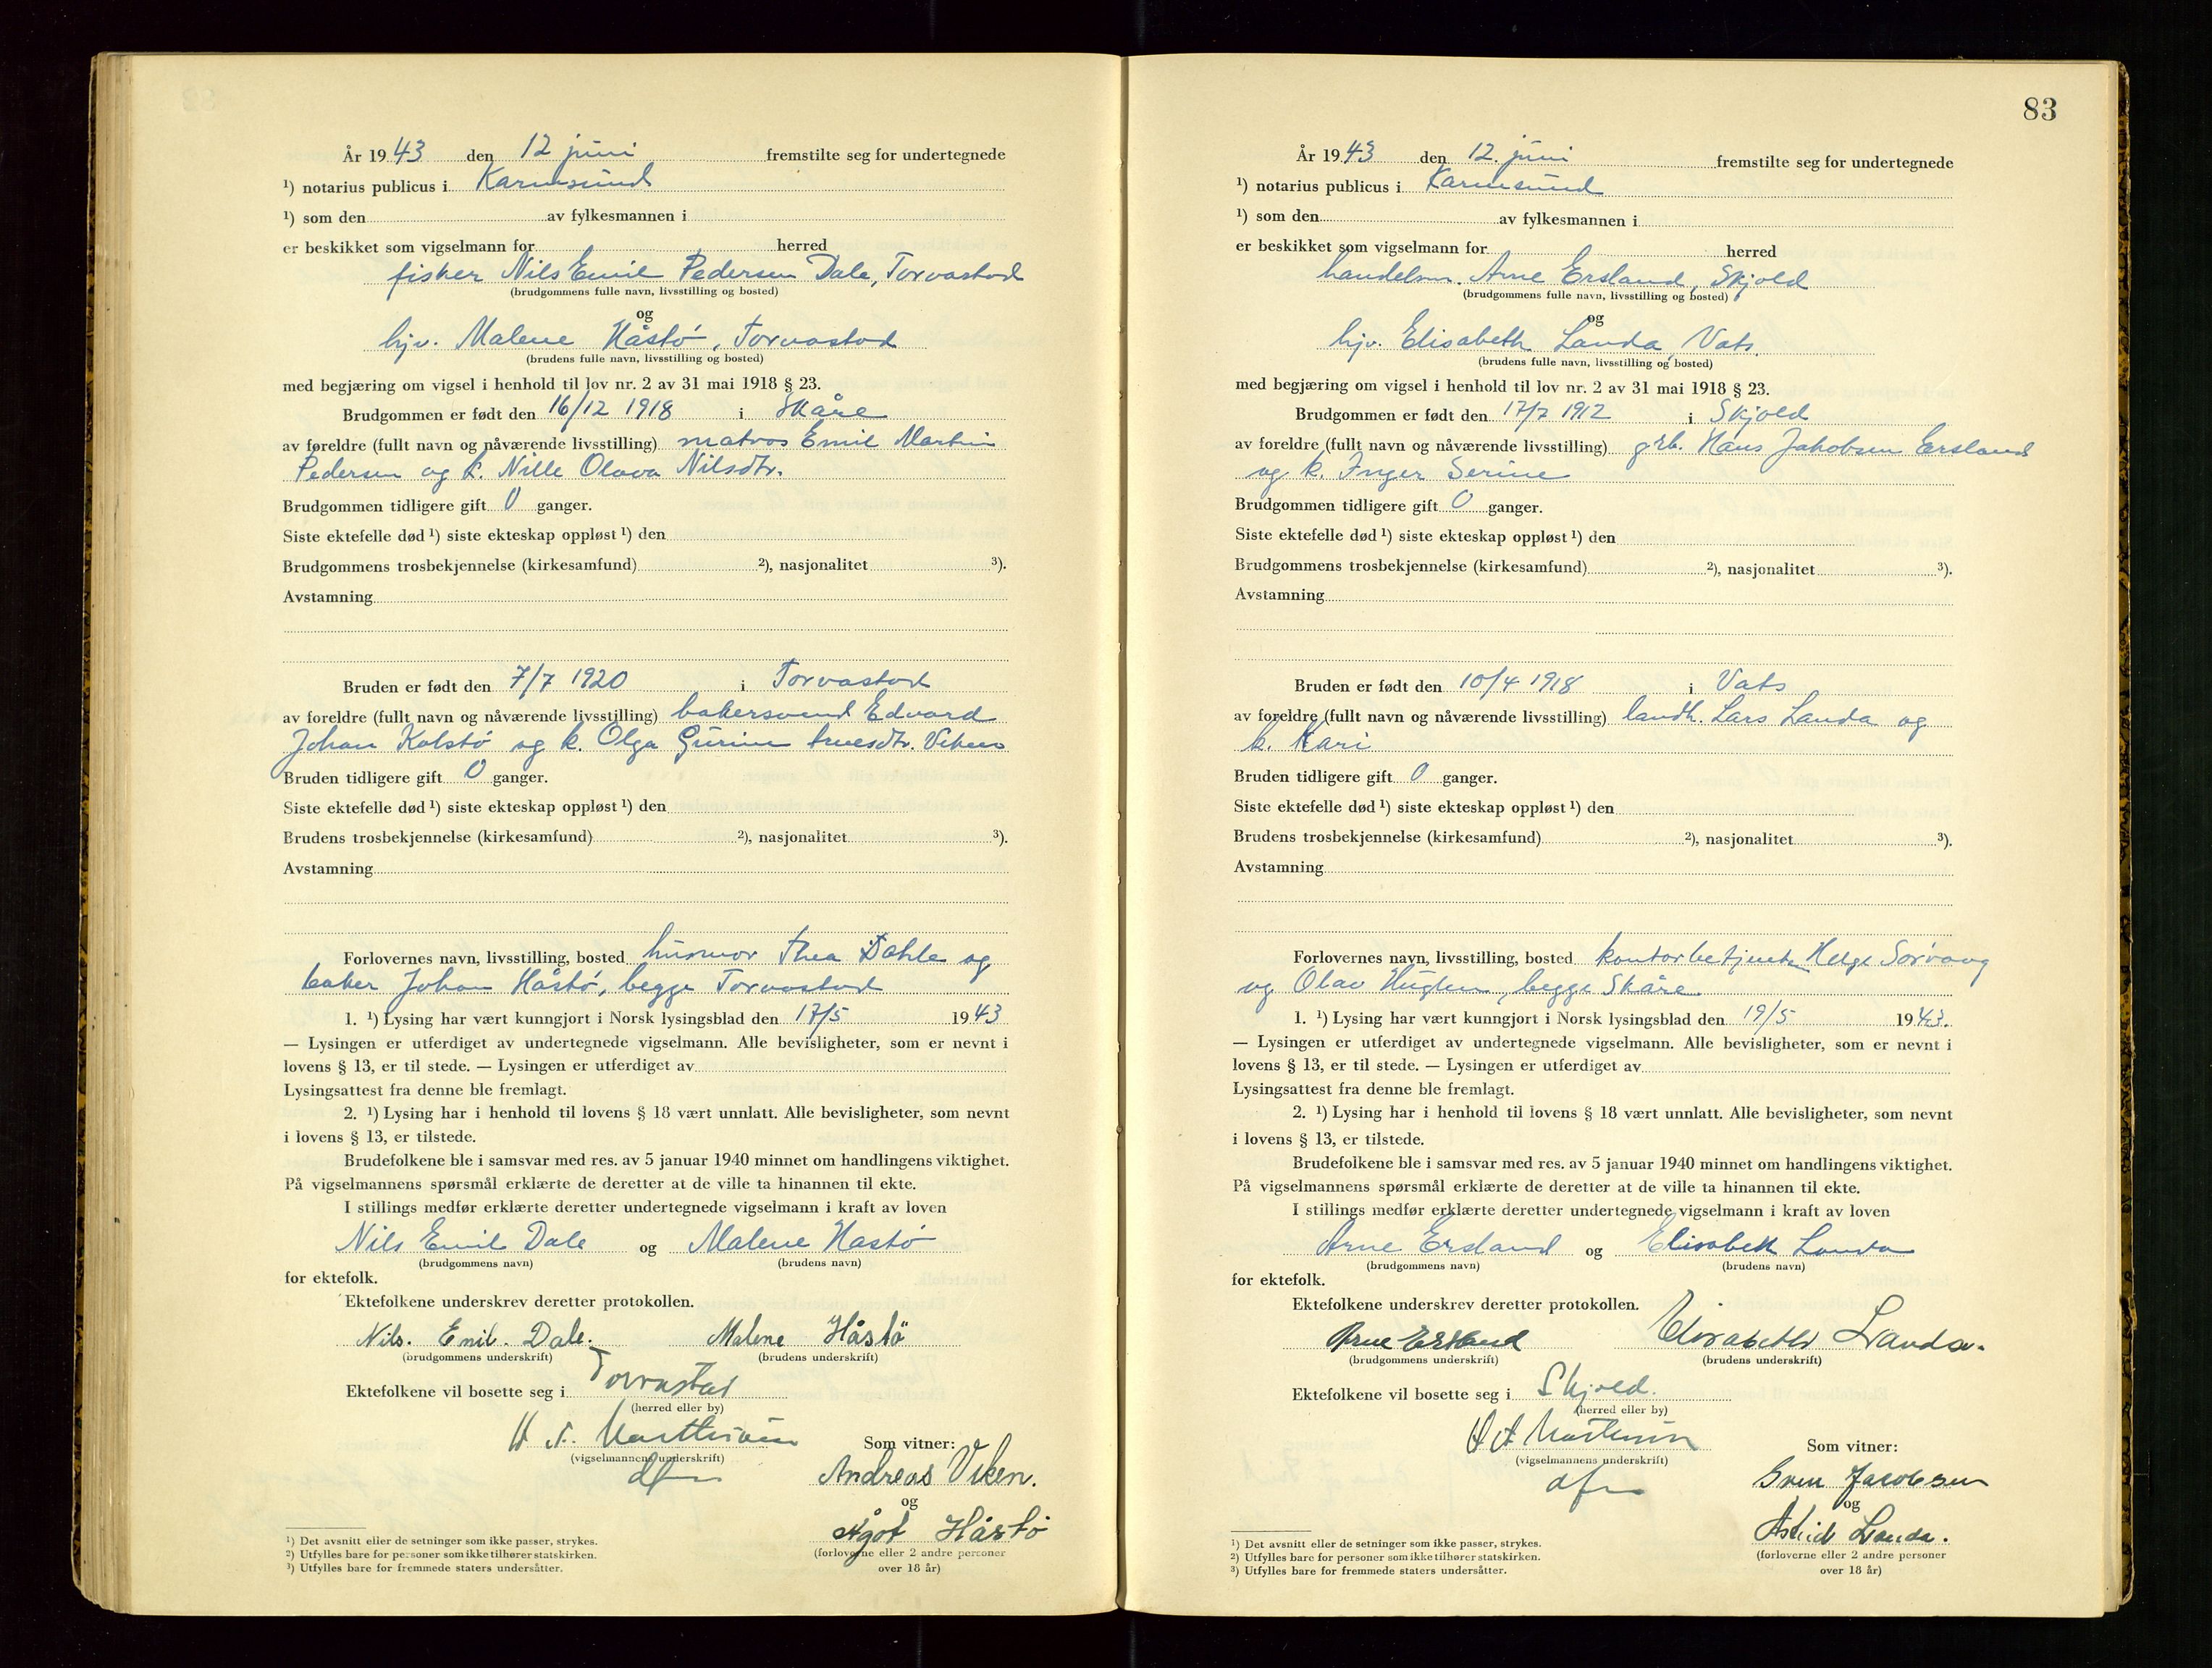 År 1943 den 12 juni fremstilte seg for undertegnede
¹) notarius publicus i Karmsund
¹) som den av fylkesmannen i
er beskikket som vigselmann for herred
fisker Nils Emil Pedersen Dale, Torvastad
(brudgommens fulle navn, livsstilling og bosted)
og
hjv. Malene Håstø, Torvastad
(brudens fulle navn, livsstilling og bosted)
med begjæring om vigsel i henhold til lov nr. 2 av 31 mai 1918 § 23.
Brudgommen er født den 16/12 1918 i Skåre
av foreldre (fullt navn og nåværende livsstilling) matros Emil Martin
Pedersen og k. Nille Olava Nilsdtr.
Brudgommen tidligere gift 0 ganger.
Siste ektefelle død ¹) siste ekteskap oppløst ¹) den
Brudgommens trosbekjennelse (kirkesamfund) ²), nasjonalitet ³).
Avstamning
Bruden er født den 7/7 1920 i Torvastad
av foreldre (fullt navn og nåværende livsstilling) bakersvend Edvard
Johan Kolstø og k. Olga Gurine Viken
Bruden tidligere gift 0 ganger.
Siste ektefelle død ¹) siste ekteskap oppløst ¹) den
Brudens trosbekjennelse (kirkesamfund) ²), nasjonalitet ³).
Avstamning
Forlovernes navn, livsstilling, bosted husmor Thea Dahle og
baker Johan Håstø, begge Torvastad
1. ¹) Lysing har vært kunngjort i Norsk lysingsblad den 17/5 1943
— Lysingen er utferdiget av undertegnede vigselmann. Alle bevisligheter, som er nevnt i
lovens § 13, er til stede. — Lysingen er utferdiget av
Lysingsattest fra denne ble fremlagt.
2. ¹) Lysing har i henhold til lovens § 18 vært unnlatt. Alle bevisligheter, som nevnt
i lovens § 13, er tilstede.
Brudefolkene ble i samsvar med res. av 5 januar 1940 minnet om handlingens viktighet.
På vigselmannens spørsmål erklærte de deretter at de ville ta hinannen til ekte.
I stillings medfør erklærte deretter undertegnede vigselmann i kraft av loven
Nils Emil Dale og Malene Hastø
(brudgommens navn) (brudens navn)
for ektefolk.
Ektefolkene underskrev deretter protokollen.
Nils. Emil. Dale. Malene Håstö
(brudgommens underskrift) (brudens underskrift)
Ektefolkene vil bosette seg i Torvastad
(herred eller by)
Som vitner:
(vigselmannens underskrift)
Andreas Viken.
og
Agot Håstø
(forloverne eller 2 andre personer
over 18 år)
¹) Det avsnitt eller de setninger som ikke passer, strykes.
²) Utfylles bare for personer som ikke tilhører statskirken.
³) Utfylles bare for fremmede staters undersåtter.
83
År 1943 den 12. juni fremstilte seg for undertegnede
¹) notarius publicus i Karmsund
¹) som den av fylkesmannen i
er beskikket som vigselmann for herred
handelsm. Arne Ersland, Skjold
(brudgommens fulle navn, livsstilling og bosted)
og
hjv. Elisabeth Landa, Vats.
(brudens fulle navn, livsstilling og bosted)
med begjæring om vigsel i henhold til lov nr. 2 av 31 mai 1918 § 23.
Brudgommen er født den 17/7 1912 i Skjold
av foreldre (fullt navn og nåværende livsstilling) grb. Hans Jakobsen Ersland
og k. Inger Serine
Brudgommen tidligere gift 0 ganger.
Siste ektefelle død ¹) siste ekteskap oppløst ¹) den
Brudgommens trosbekjennelse (kirkesamfund) ²), nasjonalitet ³).
Avstamning
Bruden er født den 10/4 1918 i Vats
av foreldre (fullt navn og nåværende livsstilling) landh. Lars Landa og
k. Kari
Bruden tidligere gift 0 ganger.
Siste ektefelle død ¹) siste ekteskap oppløst ¹) den
Brudens trosbekjennelse (kirkesamfund) ²), nasjonalitet ³).
Avstamning
Forlovernes navn, livsstilling, bosted kontorbetjente Helge Sørvaag
og Olav Huglen, begge Skåre
1. ¹) Lysing har vært kunngjort i Norsk lysingsblad den 19/5 1943.
— Lysingen er utferdiget av undertegnede vigselmann. Alle bevisligheter, som er nevnt i
lovens § 13, er til stede. — Lysingen er utferdiget av
Lysingsattest fra denne ble fremlagt.
2. ¹) Lysing har i henhold til lovens § 18 vært unnlatt. Alle bevisligheter, som nevnt
i lovens § 13, er tilstede.
Brudefolkene ble i samsvar med res. av 5 januar 1940 minnet om handlingens viktighet.
På vigselmannens spørsmål erklærte de deretter at de ville ta hinannen til ekte.
I stillings medfør erklærte deretter undertegnede vigselmann i kraft av loven
Arne Ersland og Elisabeth Landa
(brudgommens navn) (brudens navn)
for ektefolk.
Ektefolkene underskrev deretter protokollen.
Arne Ersland Elisabeth Landa.
(brudgommens underskrift) (brudens underskrift)
Ektefolkene vil bosette seg i Skjold.
(herred eller by)
Som vitner:
(vigselmannens underskrift)
Sven Jacobsen
og
Astrid Landa.
(forloverne eller 2 andre personer
over 18 år)
¹) Det avsnitt eller de setninger som ikke passer, strykes.
²) Utfylles bare for personer som ikke tilhører statskirken.
³) Utfylles bare for fremmede staters undersåtter.